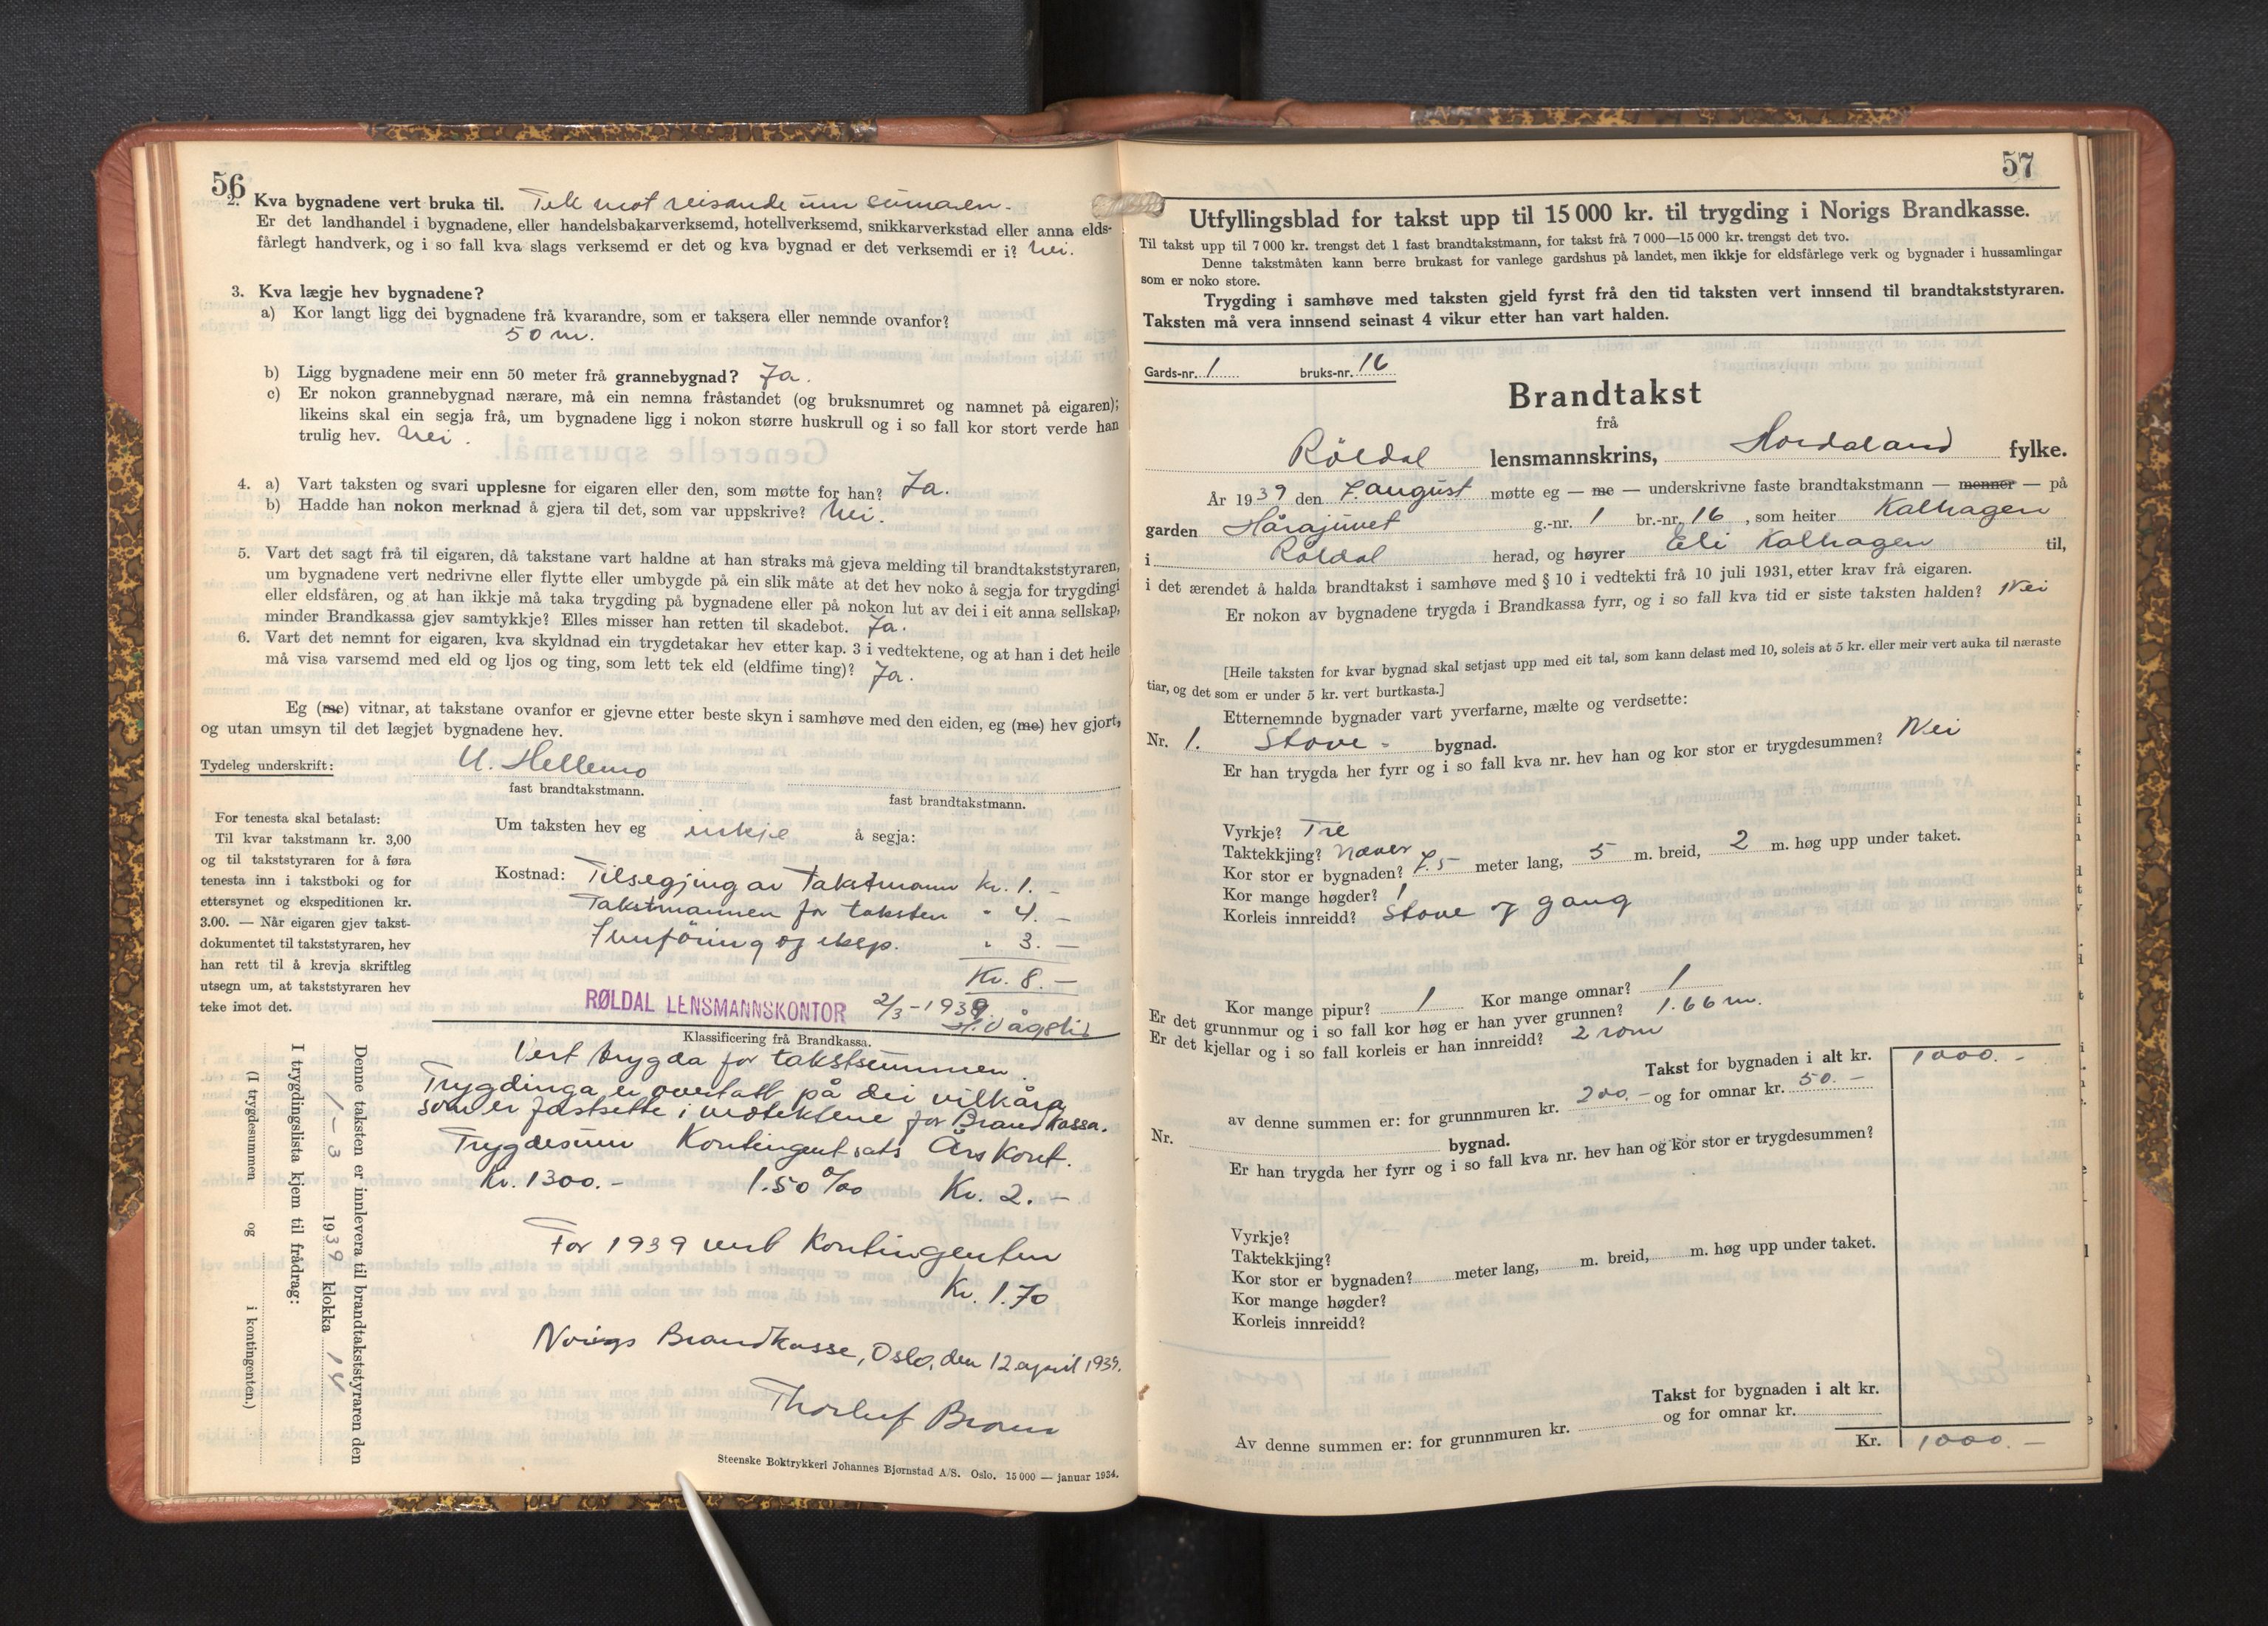 56
2. Kva bygnadene vert bruka til. Tek mot reisande um sumaren.
Er det landhandel i bygnadene, eller handelsbakarverksemd, hotellverksemd, snikkarverkstad eller anna elds-
fårlegt handverk, og i so fall kva slags verksemd er det og kva bygnad er det verksemdi er i? Nei.
3. Kva lægje hev bygnadene?
a) Kor langt ligg dei bygnadene frå kvarandre, som er taksera eller nemnde ovanfor?
50 m.
b) Ligg bygnadene meir enn 50 meter frå grannebygnad? Ja.
c) Er nokon grannebygnad nærare, må ein nemna fråstandet (og bruksnumret og namnet på eigaren);
likeins skal ein segja frå, um bygnadene ligg i nokon større huskrull og i so fall kor stort verde han
trulig hev. Nei.
4. a) Vart taksten og svari upplesne for eigaren eller den, som møtte for han? Ja.
b) Hadde han nokon merknad å gjera til det, som var uppskrive? Nei.
5. Vart det sagt frå til eigaren, då takstane vart haldne at han straks må gjeva melding til brandtakststyraren,
um bygnadene vert nedrivne eller flytte eller umbygde på ein slik måte at det hev noko å segja for trygdingi
eller eldsfåren, og at han ikkje må taka trygding på bygnadene eller på nokon lut av dei i eit anna sellskap,
minder Brandkassa gjev samtykkje? Elles misser han retten til skadebot. Ja.
6. Vart det nemnt for eigaren, kva skyldnad ein trygdetakar hev etter kap. 3 i vedtektene, og at han i det heile
må visa varsemd med eld og ljos og ting, som lett tek eld (eldfime ting)? Ja.
Eg (me) vitnar, at takstane ovanfor er gjevne etter beste skyn i samhøve med den eiden, eg (me) hev gjort,
og utan umsyn til det lægjet bygnadene hev.
Tydeleg underskrift: U. Hellemo
fast brandtakstmann. fast brandtakstmann.
For tenesta skal betalast:
Til kvar takstmann kr. 3,00
og til takststyraren for å føra
tenesta inn i takstboki og for
ettersynet og ekspeditionen kr.
3.00. — Når eigaren gjev takst-
dokumentet til takststyraren, hev
han rett til å krevja skriftleg
utsegn um, at takststyraren hev
teke imot det.
Um taksten hev eg inkje å segja:
Kostnad: Tilsegjing av Takstmann kr. 1. –
Takstmannen for taksten " 4. –
Innføring og eksp. " 3. –
Kr. 8. –
RØLDAL LENSMANNSKONTOR 2/3 - 1939
Klassificering frå Brandkassa.
Vert trygda for takstsummen.
Trygdinga er overtatt på dei vilkåra
som er fastsette i vedtektene for Brandkassa.
Trygdesum Kontingentsats Års Kont.
Kr. 1300. – 1.50 ‰ Kr. 2. –
For 1939 vert Kontingenten
Kr. 1.70
Norigs Brandkasse, Oslo, den 12 april 1939.
Denne taksten er innlevera til brandtakststyraren den
1-3 1939 klokka 14
I trygdingslista kjem til frådrag:
(I trygdesummen og i kontingenten.)
Steenske Boktrykkeri Johannes Bjørnstad A/S. Oslo. 15 000 — januar 1934.
57
Utfyllingsblad for takst upp til 15 000 kr. til trygding i Norigs Brandkasse.
Til takst upp til 7 000 kr. trengst det 1 fast brandtakstmann, for takst frå 7 000—15 000 kr. trengst det tvo.
Denne takstmåten kann berre brukast for vanlege gardshus på landet, men ikkje for eldsfårlege verk og bygnader i hussamlingar
som er noko store.
Trygding i samhøve med taksten gjeld fyrst frå den tid taksten vert innsend til brandtakststyraren.
Taksten må vera innsend seinast 4 vikur etter han vart halden.
Gards-nr. 1 bruks-nr. 16
Brandtakst
frå
Röldal lensmannskrins, Hordaland fylke.
År 1939 den 7. august møtte eg — me — underskrivne faste brandtakstmann — menner — på
garden Hårajuvet g.-nr. 1 br.-nr. 16, som heiter Kalhagen
i Röldal herad, og høyrer Eli Kalhagen til,
i det ærendet å halda brandtakst i samhøve med § 10 i vedtekti frå 10 juli 1931, etter krav frå eigaren.
Er nokon av bygnadene trygda i Brandkassa fyrr, og i so fall kva tid er siste taksten halden? Nei
[Heile taksten for kvar bygnad skal setjast upp med eit tal, som kann delast med 10, soleis at 5 kr. eller meir vert auka til næraste
tiar, og det som er under 5 kr. vert burtkasta.]
Etternemnde bygnader vart yverfarne, mælte og verdsette:
Nr. 1. Stove - bygnad.
Er han trygda her fyrr og i so fall kva nr. hev han og kor stor er trygdesummen? Nei
Vyrkje? Tre
Taktekkjing? Næver
Kor stor er bygnaden? 7.5 meter lang, 5 m. breid, 2 m. høg upp under taket.
Kor mange høgder? 1
Korleis innreidd? Stove og gang
Kor mange pipur? 1 Kor mange omnar? 1
Er det grunnmur og i so fall kor høg er han yver grunnen? 1.66 m.
Er det kjellar og i so fall korleis er han innreidd? 2 rom
Takst for bygnaden i alt kr. 1000. –
av denne summen er: for grunnmuren kr. 200. – og for omnar kr. 50. –
Nr. bygnad.
Er han trygda her fyrr og i so fall kva nr. hev han og kor stor er trygdesummen?
Vyrkje?
Taktekkjing?
Kor stor er bygnaden? meter lang, m. breid, m. høg upp under taket.
Kor mange høgder?
Korleis innreidd?
Takst for bygnaden i alt kr.
Av denne summen er: for grunnmuren kr. og for omnar kr.
Kr. 1000. –